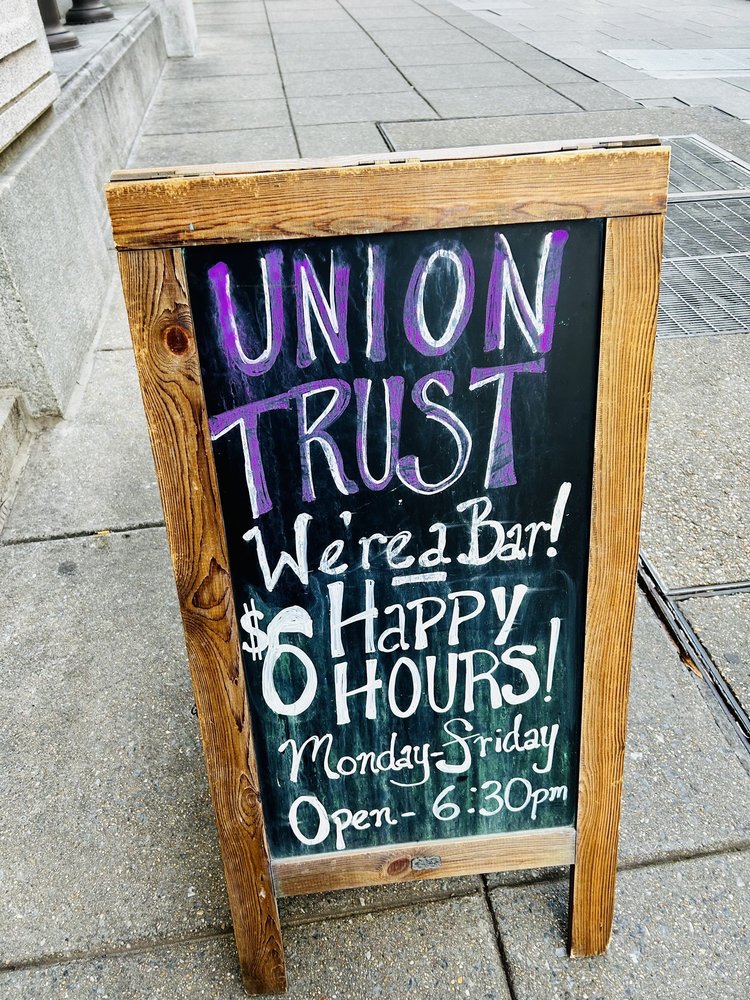 UNION
TRUST
We're a Bar!
$6 HAPPY
HOURS!
Monday-Friday
Open- 6:30pm